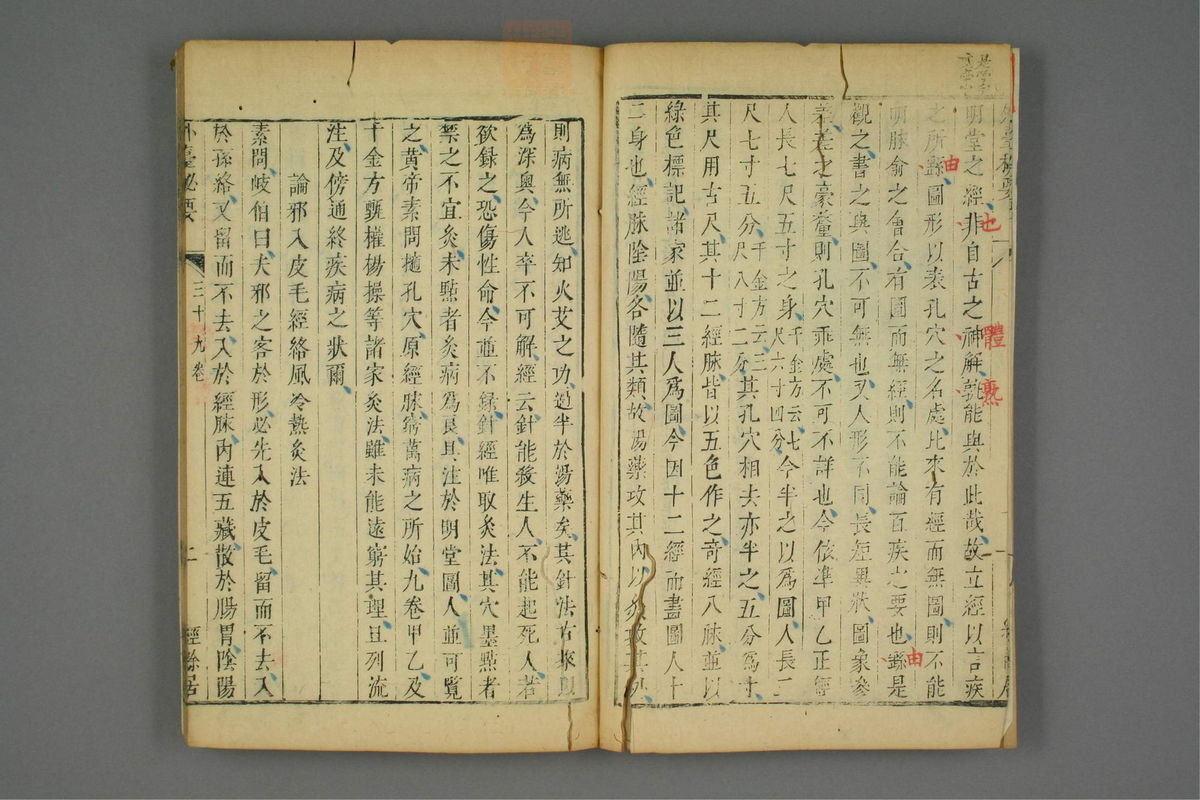 明堂之經非自古之神解孰能與於此哉故立經以言疾
之所繇圖形以表孔穴之名處比來有經而無圖則不能
明脉俞之會合有圖而無經則不能論百疾之要也繇是
觀之書之與圖不可無也又人形不同長短異狀圖象參
差差之毫釐則孔穴乖處不可不詳也今依準甲乙正經
人長七尺五寸之身千金方云七尺六寸四分今半之以爲圖人長三
尺七寸五分千金方云三尺八寸二分其孔穴相去亦半之五分爲寸
其尺用古尺其十二經脉皆以五色作之奇經八脉並以
綠色標記諸家並以三人爲圖今因十二經而畫圖人十
二身也經脉陰陽各隨其類故湯藥攻其內以灸攻其外
則病無所逃知火艾之功過半於湯藥矣其針法古來以
爲深奧今人卒不可解經云針能殺生人不能起死人若
欲錄之恐傷性命今並不錄針經唯取灸法其穴墨點者
禁之不宜灸朱點者灸病爲良具注於明堂圖人並可覽
之黃帝素問擿孔穴原經脉窮萬病之所始九卷甲乙及
千金方甄權楊操等諸家灸法雖未能遠窮其理且列流
注及傍通終疾病之狀爾
論邪入皮毛經絡風冷熱灸法
素問岐伯曰夫邪之客於形必先入於皮毛留而不去入
於孫絡又留而不去入於經脉內連五藏散於腸胃陰陽
外臺祕要
三十九卷
二
經餘居
由
也
體
熟
由